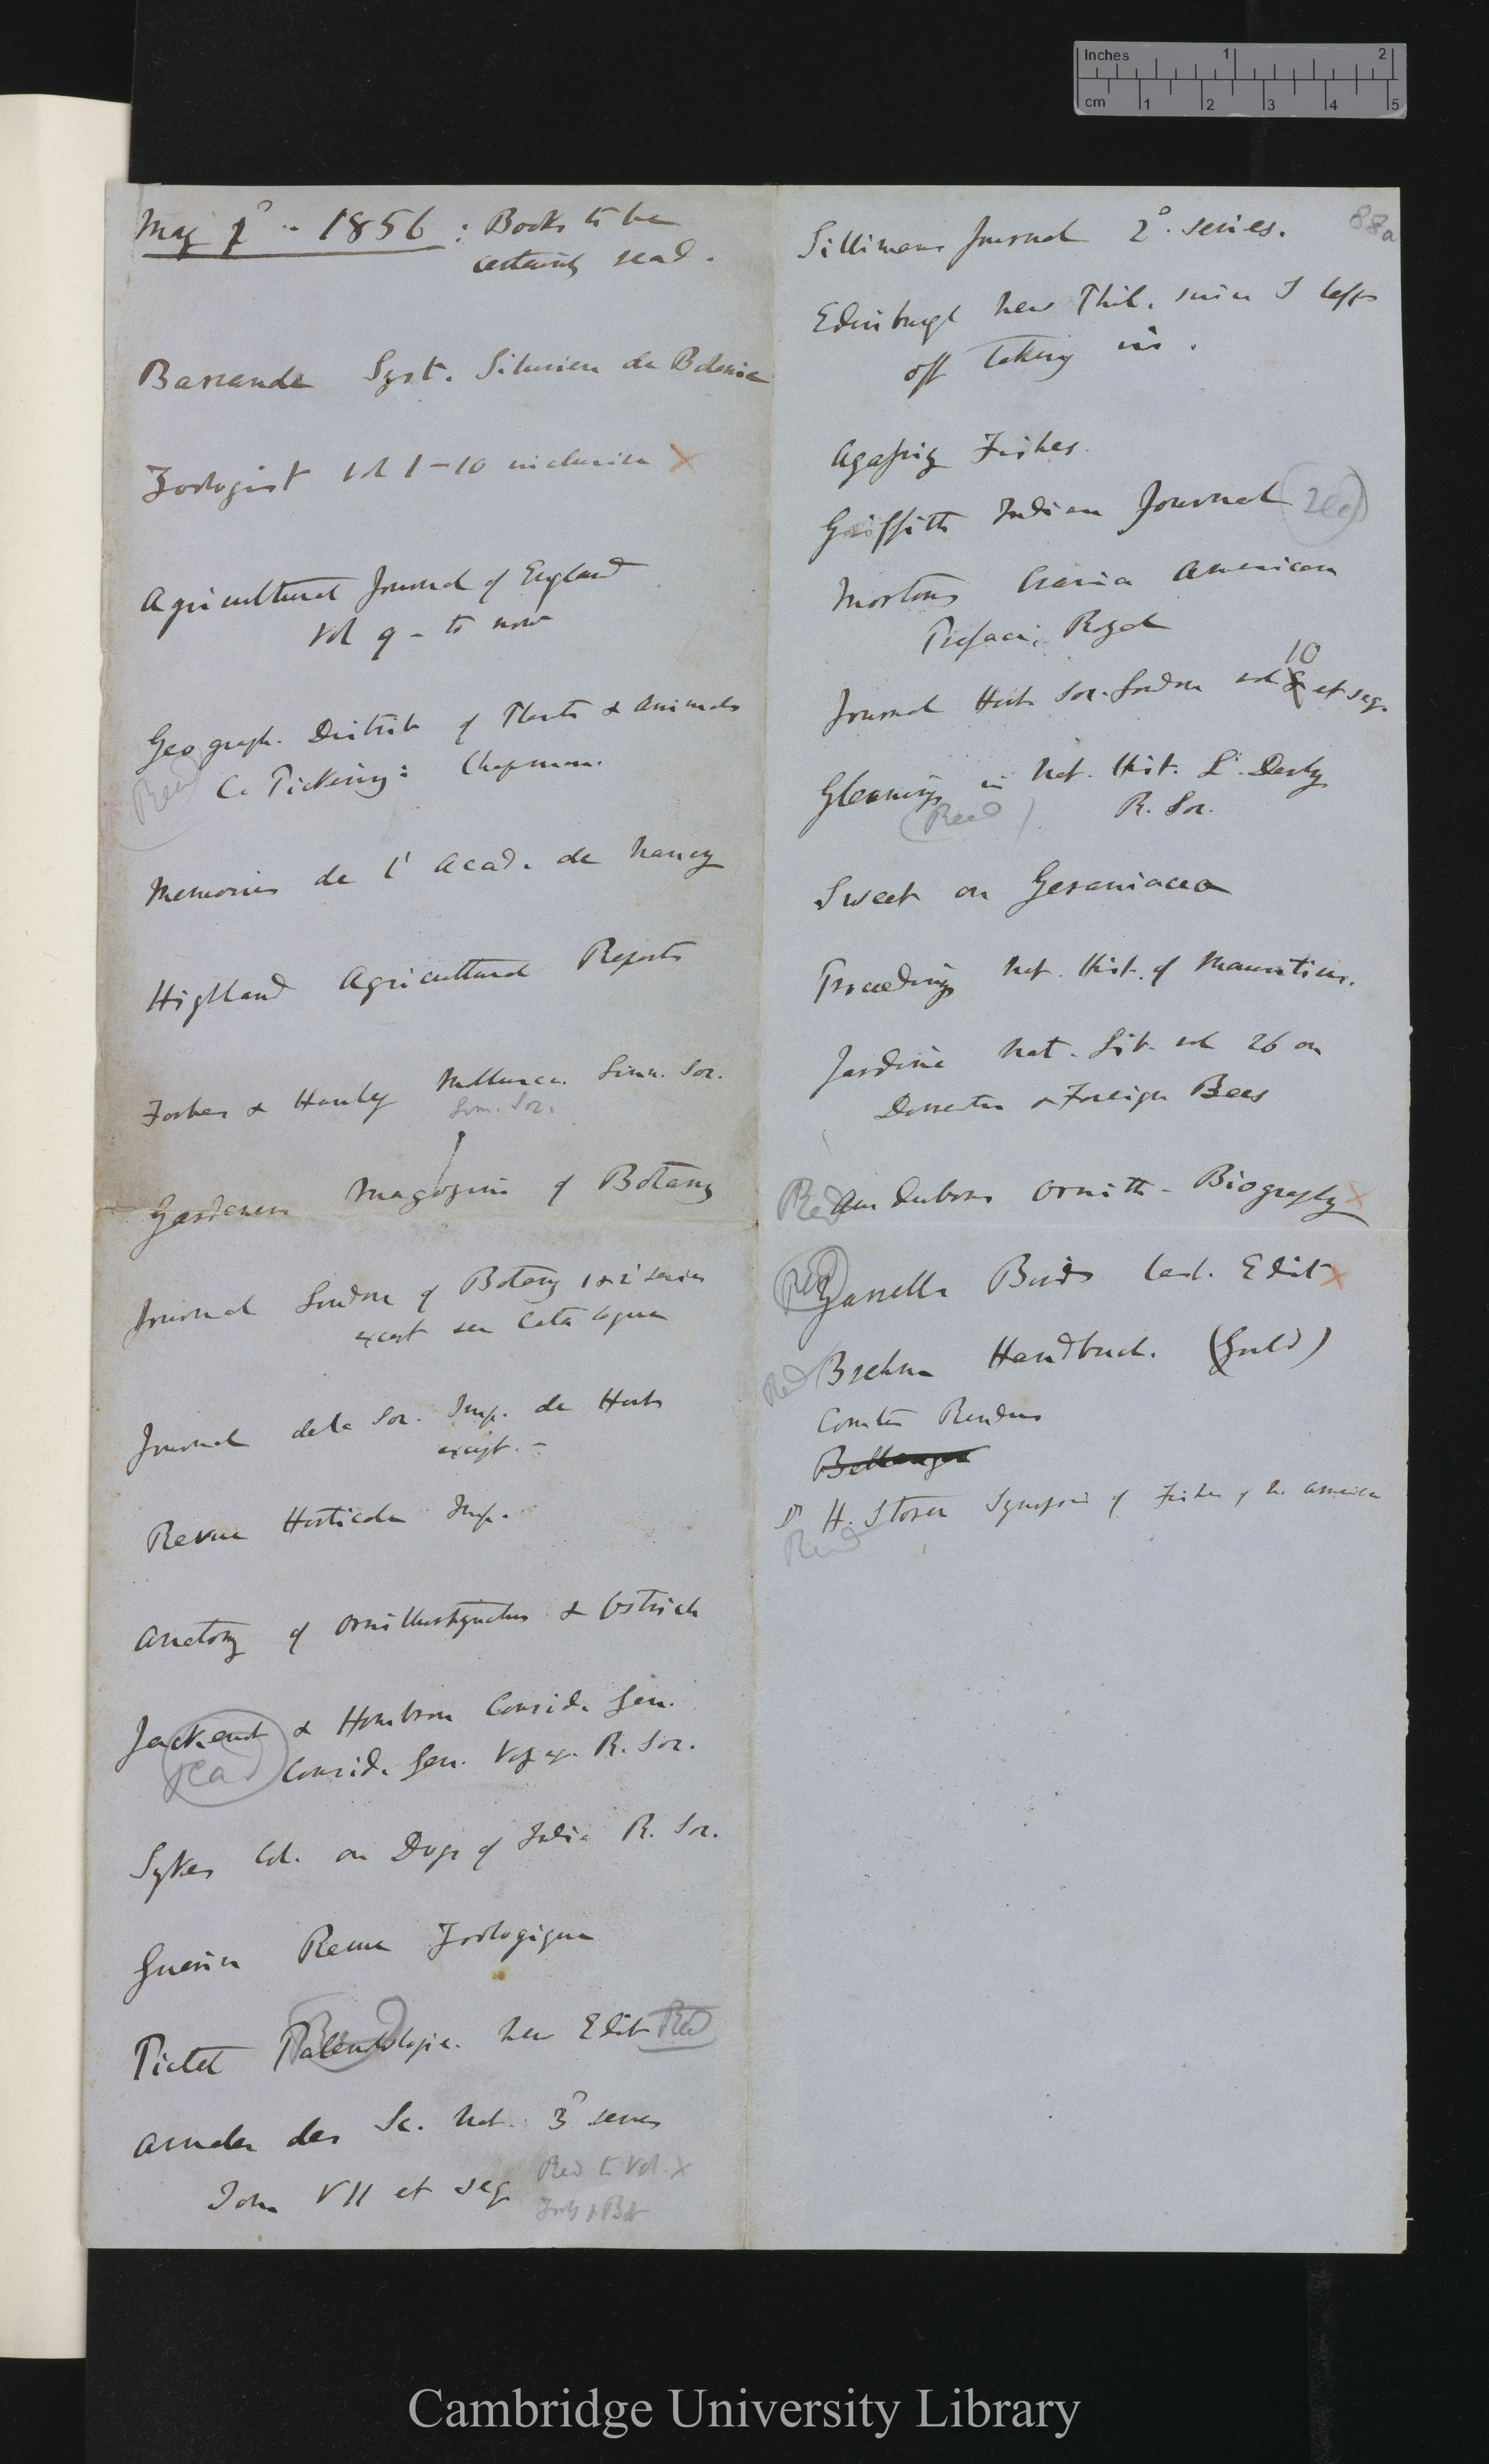 Inches 1 2
cm 1 2 3 4 5
May 1º — 1856 : Books to be
certainly read.
Barrande Syst. Silurien de Boheme
Zoologist vol 1–10 inclusive X
Agricultural Journal of England
vol 9 – to now
Geograph. Distrib of Plants & Animals
Read C. Pickering: Chapman.
Memoires de l' Acad. de Nancy
Highland Agricultural Reports
Forbes & Hanley Mollusca. Linn. Soc.
Linn. Soc.
Gardeners Magazine of Botany
Journal London of Botany 1 & 2 series
except see Catalogue
Journal de la Soc. Imp. de Hort
except. –
Revue Horticole Imp.
Anatomy of Ornithorhynchus & Ostrich
Jackenot & Hombron Consid. Gen.
read Consid. Gen. Voyage R. Soc.
Sykes Col. on Dogs of India R. Soc.
Guerin Revue Zoologique
Pictet Paleontologie. New Edit Read
Annales des Sc. Nat. 3º series
Tom VII et seq Read to Vol. X
Zool & Bot
88a
Sillimans Journal 2º. series.
Edinburgh New Phil. since I left
off taking in.
Agassiz Fishes.
Griffith Indian Journal (Read)
Mortons Crania Americana
Preface; Royal
10
Journal Hort. Soc. London vol 8 et seq.
Gleanings in Nat. Hist. Ld. Derby
(Read) R. Soc.
Sweet on Geraniaceæ
Proceedings Nat. Hist. of Mauritius.
Jardine Nat. Lib. vol 26 on
Domestic & Foreign Bees
Read Audubons Ornith – Biography X
Read Yarrells Birds last. Edit X
Read Brehm Handbuch. (Gould)
Comtes Rendus
Bellanger
Dr H. Storer Synopsis of Fishes of N. America
Read
Cambridge University Library